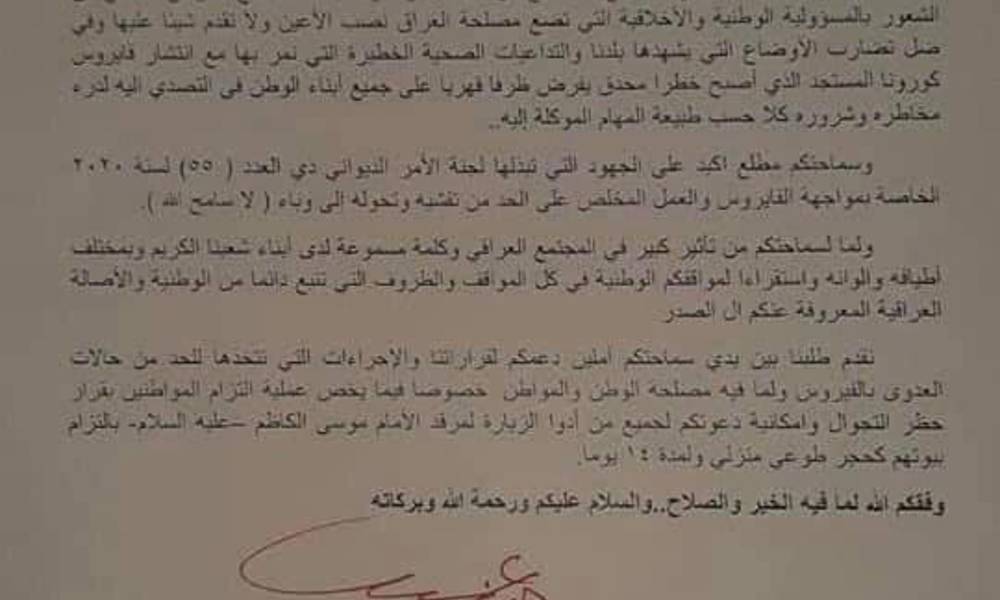 الشعور بالمسؤولية الوطنية والأخلاقية التي تضع مصلحة العراق نصب الأعين ولا نقدم شيئا عليها وفي
ضل تضارب الأوضاع التي يشهدها بلدنا والتداعيات الصحية الخطيرة التي نمر بها مع انتشار فايروس
كورونا المستجد الذي أصبح خطرا محدق يفرض ظرفا قهريا على جميع أبناء الوطن في التصدي اليه لدرء
مخاطره وشروره كلا حسب طبيعة المهام الموكلة إليه..
وسماحتكم مطلع اكيد على الجهود التي تبذلها لجنة الأمر الديواني ذي العدد ( ٥٥) لسنة ٢٠٢٠
الخاصة بمواجهة الفايروس والعمل المخلص على الحد من تفشيه وتحوله إلى وباء ( لا سامح الله ).
ولما لسماحتكم من تأثير كبير في المجتمع العراقي وكلمة مسموعة لدى أبناء شعبنا الكريم وبمختلف
أطيافه والوانه واستقراءا لمواقفكم الوطنية في كل المواقف والظروف التي تنبع دائما من الوطنية والأصالة
العراقية المعروفة عنكم ال الصدر
نقدم طلبنا بين يدي سماحتكم أملين دعمكم لقراراتنا والإجراءات التي نتخذها للحد من حالات
العدوى بالفيروس ولما فيه مصلحة الوطن والمواطن خصوصا فيما يخص عملية التزام المواطنين بقرار
حظر التجوال وامكانية دعوتكم لجميع من أدوا الزيارة لمرقد الامام موسى الكاظم –عليه السلام- بالتزام
بيوتهم كحجر طوعي منزلي ولمدة ١٤ يوما.
وفقكم الله لما فيه الخير والصلاح..والسلام عليكم ورحمة الله وبركاته